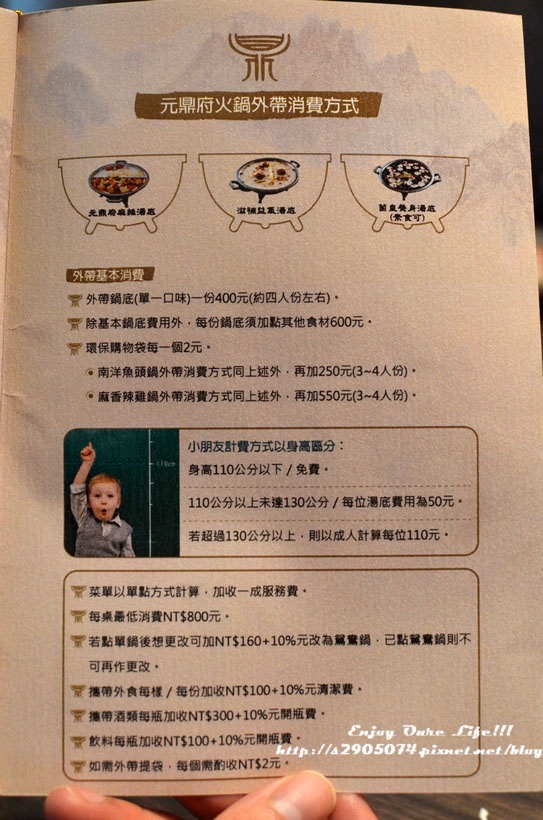 元鼎府火鍋外帶消費方式
元鼎府麻辣湯底
滋補益氣湯底
菌皇養身湯底
(素食可)
外帶基本消費
外帶鍋底(單一口味)一份400元(約四人份左右)。
除基本鍋底費用外，每份鍋底須加點其他食材600元。
環保購物袋每一個2元。
南洋魚頭鍋外帶消費方式同上述外，再加250元(3~4人份)。
麻香辣雞鍋外帶消費方式同上述外，再加550元(3~4人份)。
小朋友計費方式以身高區分：
身高110公分以下 / 免費。
110公分以上未達130公分 / 每位湯底費用為50元。
若超過130公分以上，則以成人計算每位110元。
110cm
菜單以單點方式計算，加收一成服務費。
每桌最低消費NT$800元。
若點單鍋後想更改可加NT$160+10%元改為鴛鴦鍋，已點鴛鴦鍋則不
可再作更改。
攜帶外食每樣 / 每份加收NT$100+10%元清潔費。
攜帶酒類每瓶加收NT$300+10%元開瓶費。
飲料每瓶加收NT$100+10%元開瓶費。
如需外帶提袋，每個需酌收NT$2元。
Enjoy Ours Life!!!
http://s2905074.pixnet.net/blog